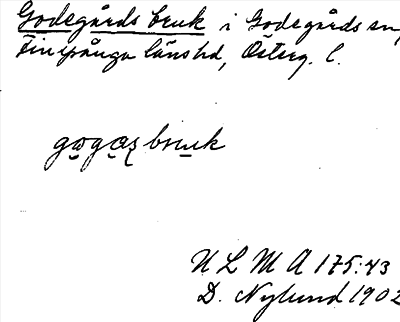 Godegårds bruk i Godegårds sn,
Finspånga länshd, Österg. l.
gogas bruk
U L M A 175:43
D. Nylund 1902